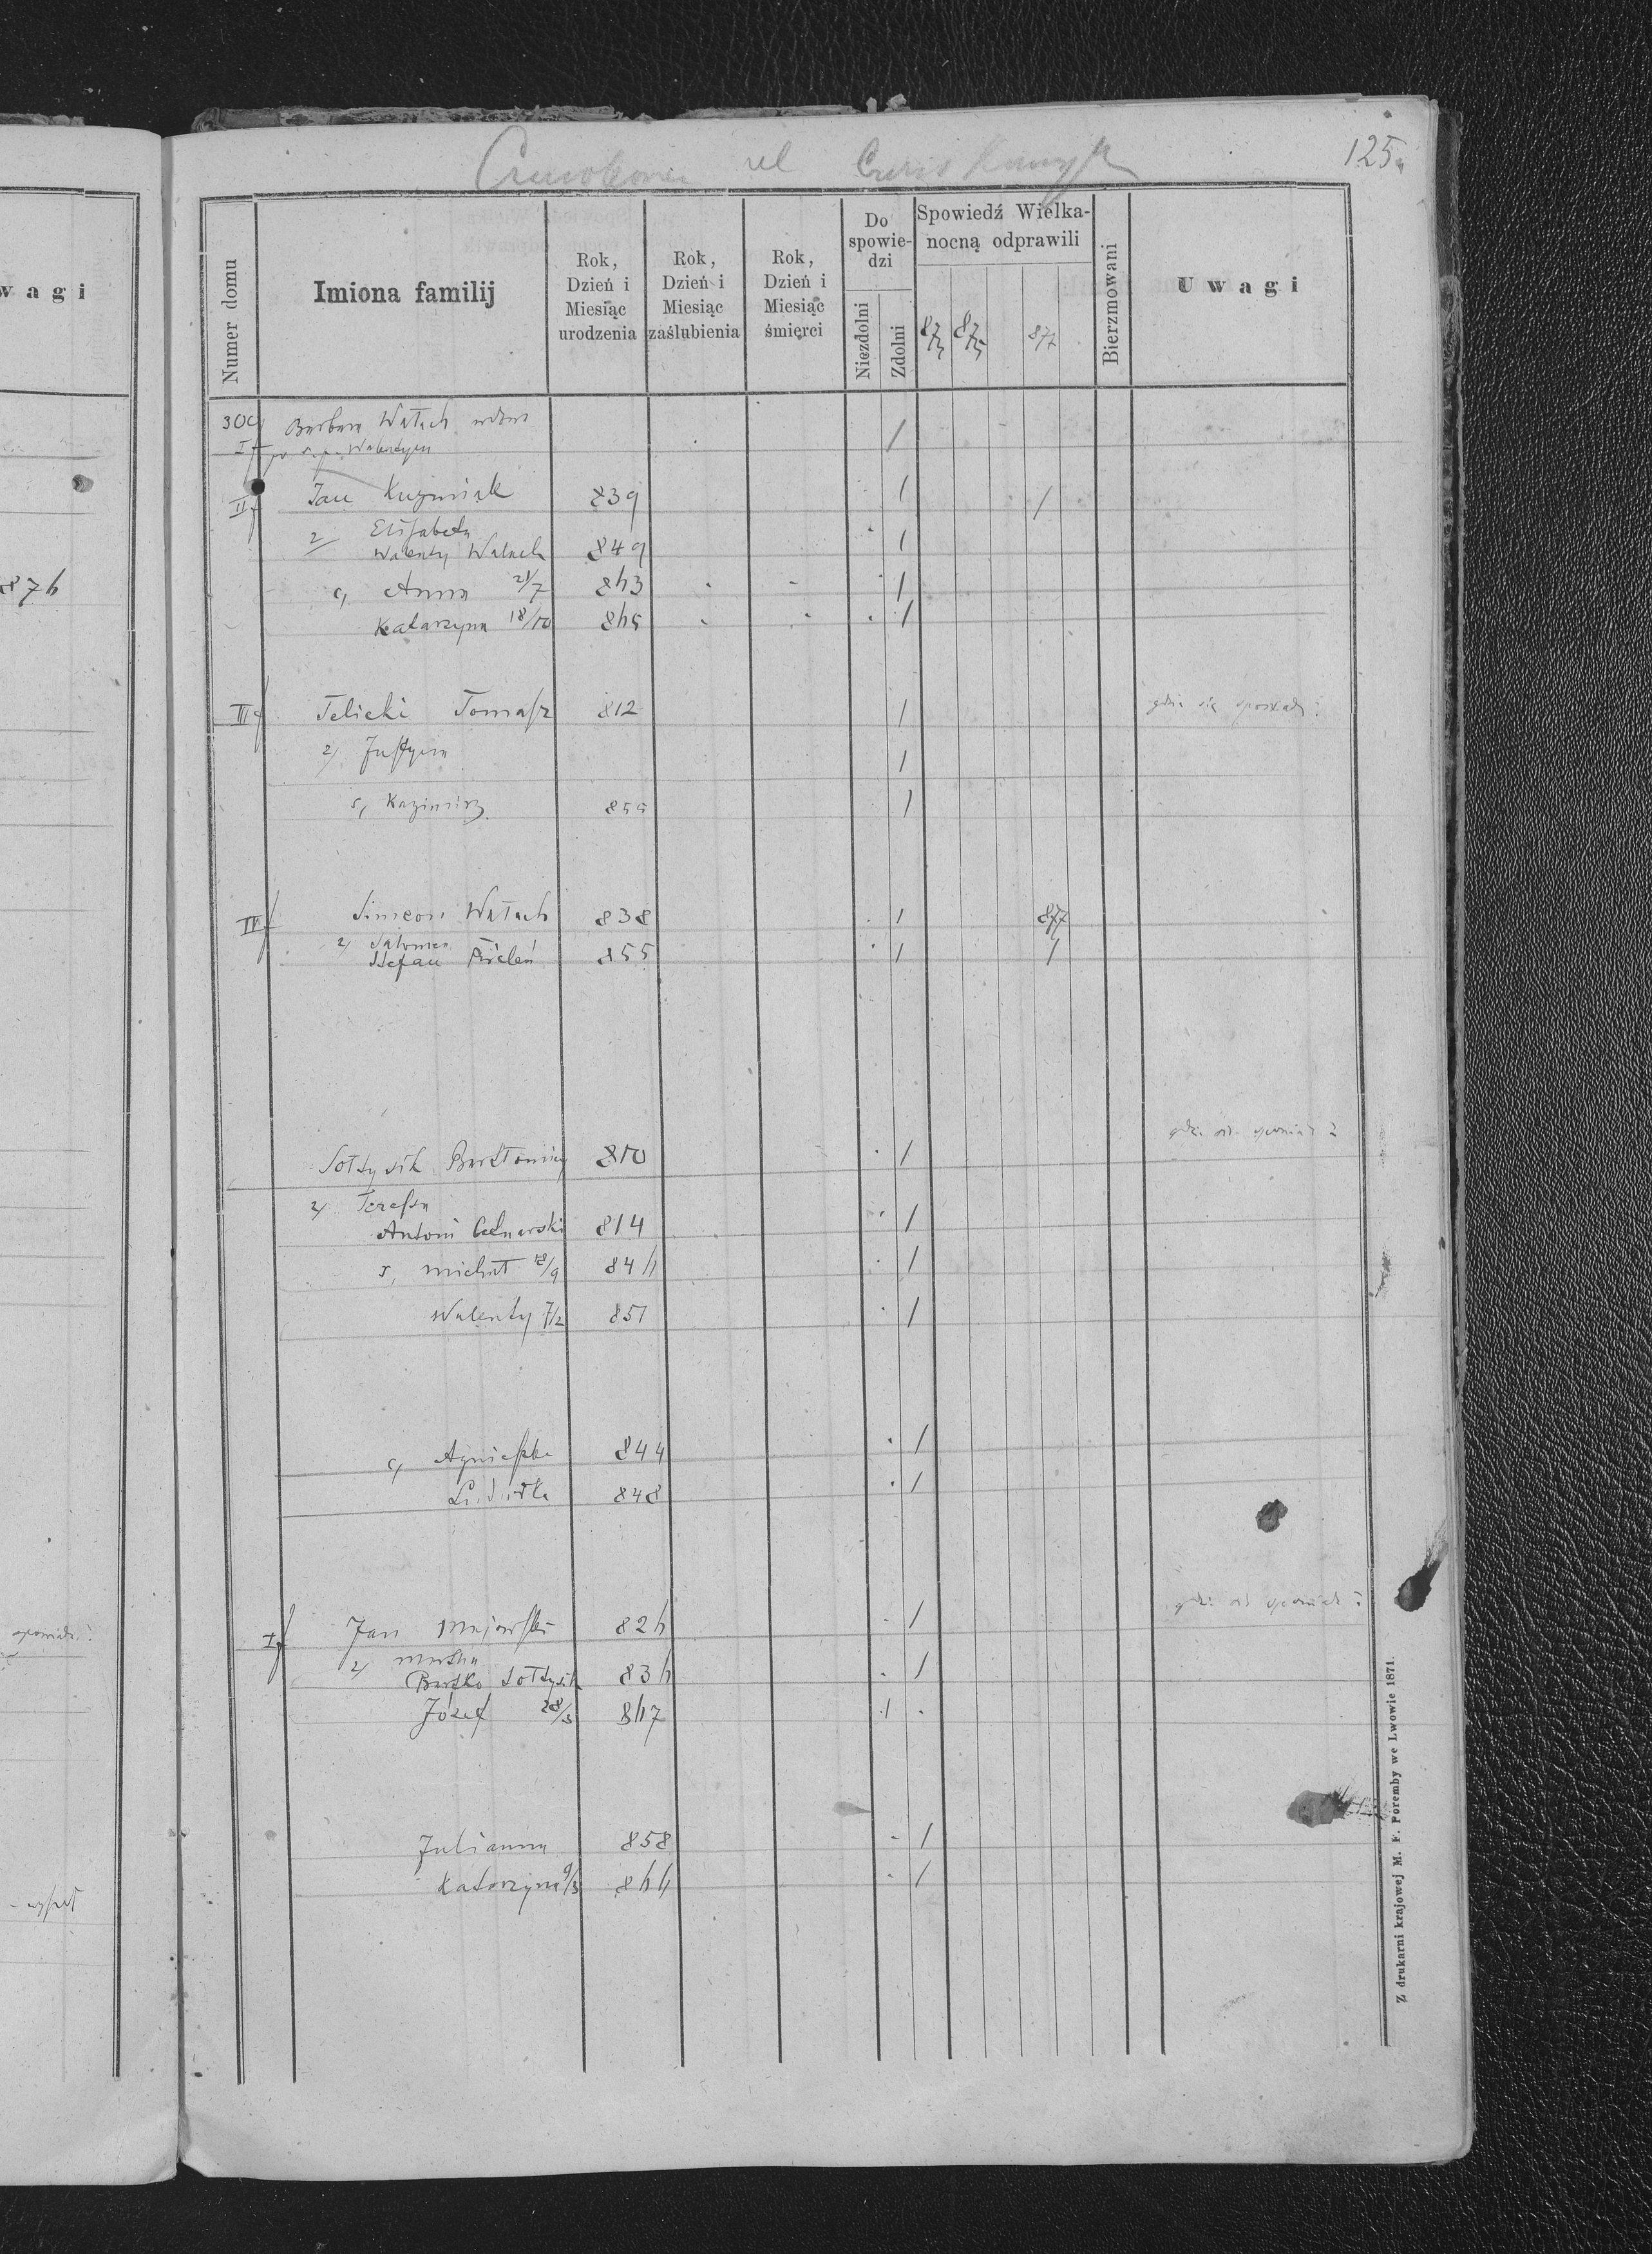 wagi
876
wyszł
125
vel
Numer domu
Imiona familij
Rok, Dzień i Miesiąc urodzenia
Rok, Dzień i Miesiąc zaślubienia
Rok, Dzień i Miesiąc śmierci
Do spowiedzi
Niezdolni
Zdolni
Spowiedź Wielkanocną odprawili
873 875 877
Bierzmowani
Uwagi
Barbara Wałach wdowa /
I po Walentym
II Jan Kuzmiak 839 / /
2/ Elisabeta
Walenty Wałach 849 /
c, Anna 21/7 863 /
Katarzyna 18/10 865 /
III Telicki Tomasz 812 / gdzie się spowiada?
2/ Justyna /
s, Kazimirz 855 /
IV Simeon Wałach 838 / 877
2/ Salomea
Stefan 855 / /
Sołtysik Bartłomiej 810 /
2/ Teresa
Antoni Cednarski 814 /
s, Michał 18/9 846 /
Walenty 7/2 851 /
c, Agnieszka 844 /
Ludwika 848 /
Jan Majewski 826 /
2/ Martha
Bartko Sołtysik 836 /
Józef 28/3 867 /
Julianna 858 /
Katarzyna 9/3 866 /
Z drukarni krajowej M. F. Poremby we Lwowie 1871.